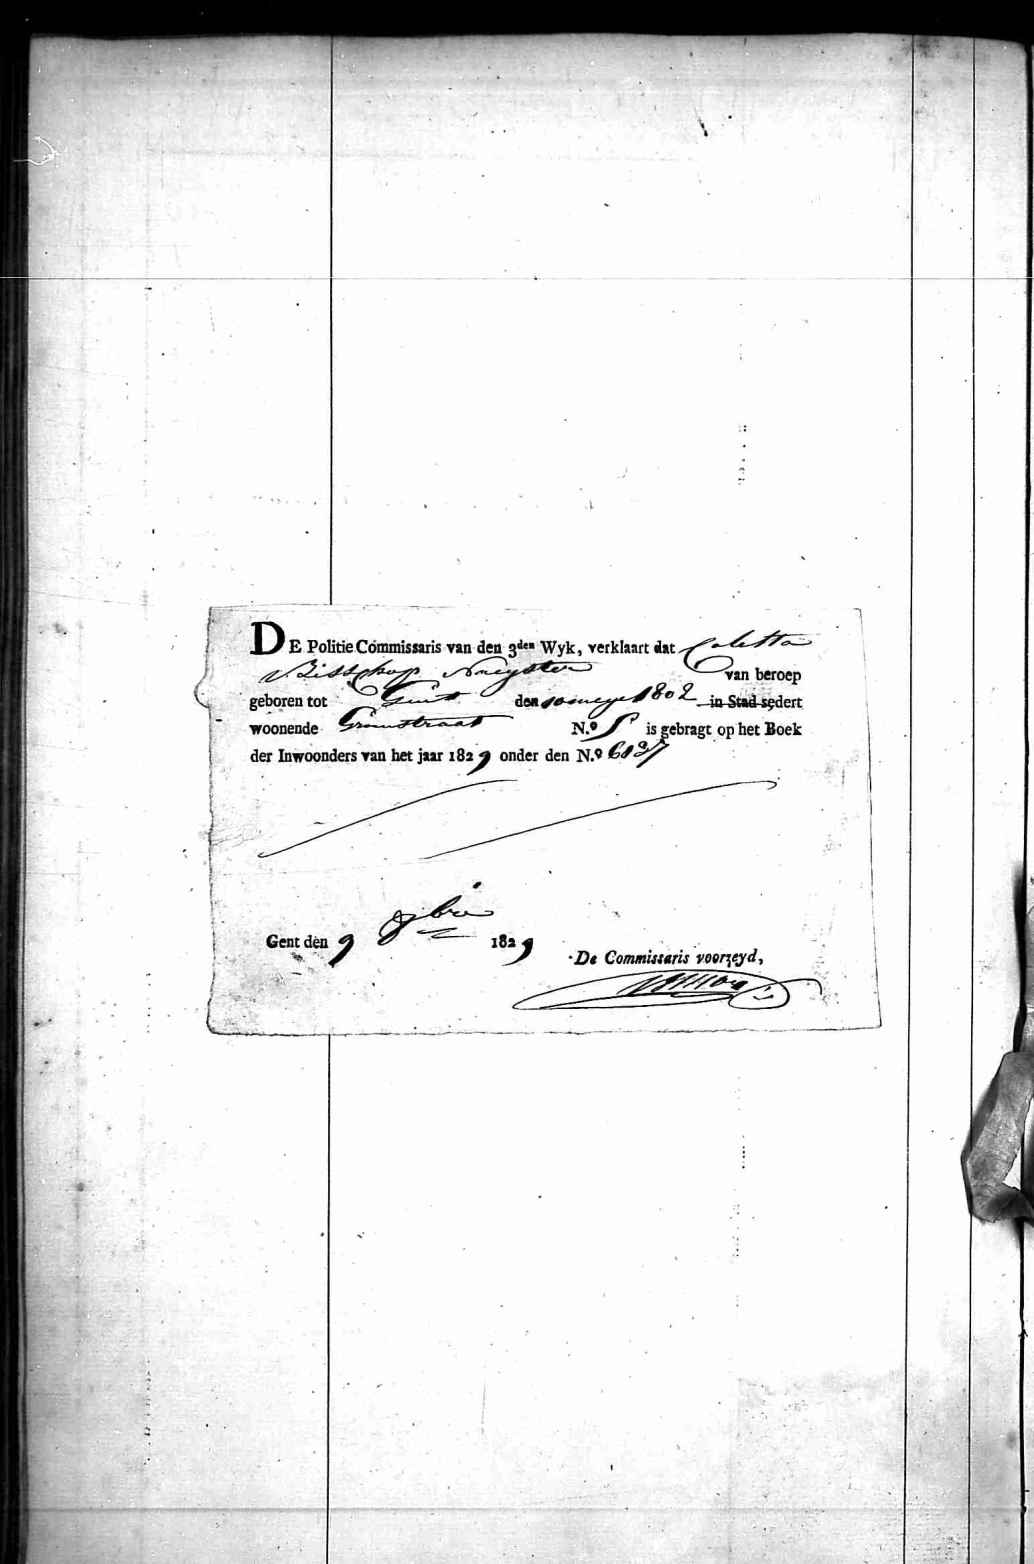 DE Politie Commissaris van den 3den Wyk, verklaart dat Coletta
v. Bisschop Naeyster van beroep
geboren tot Gent den 10 meye 1802 in Stad sedert
woonende N.º 5 is gebragt op het Boek
der Inwoonders van het jaar 1829 onder den N.º
Gent den 9 8bre 1829
De Commissaris voorzeyd,